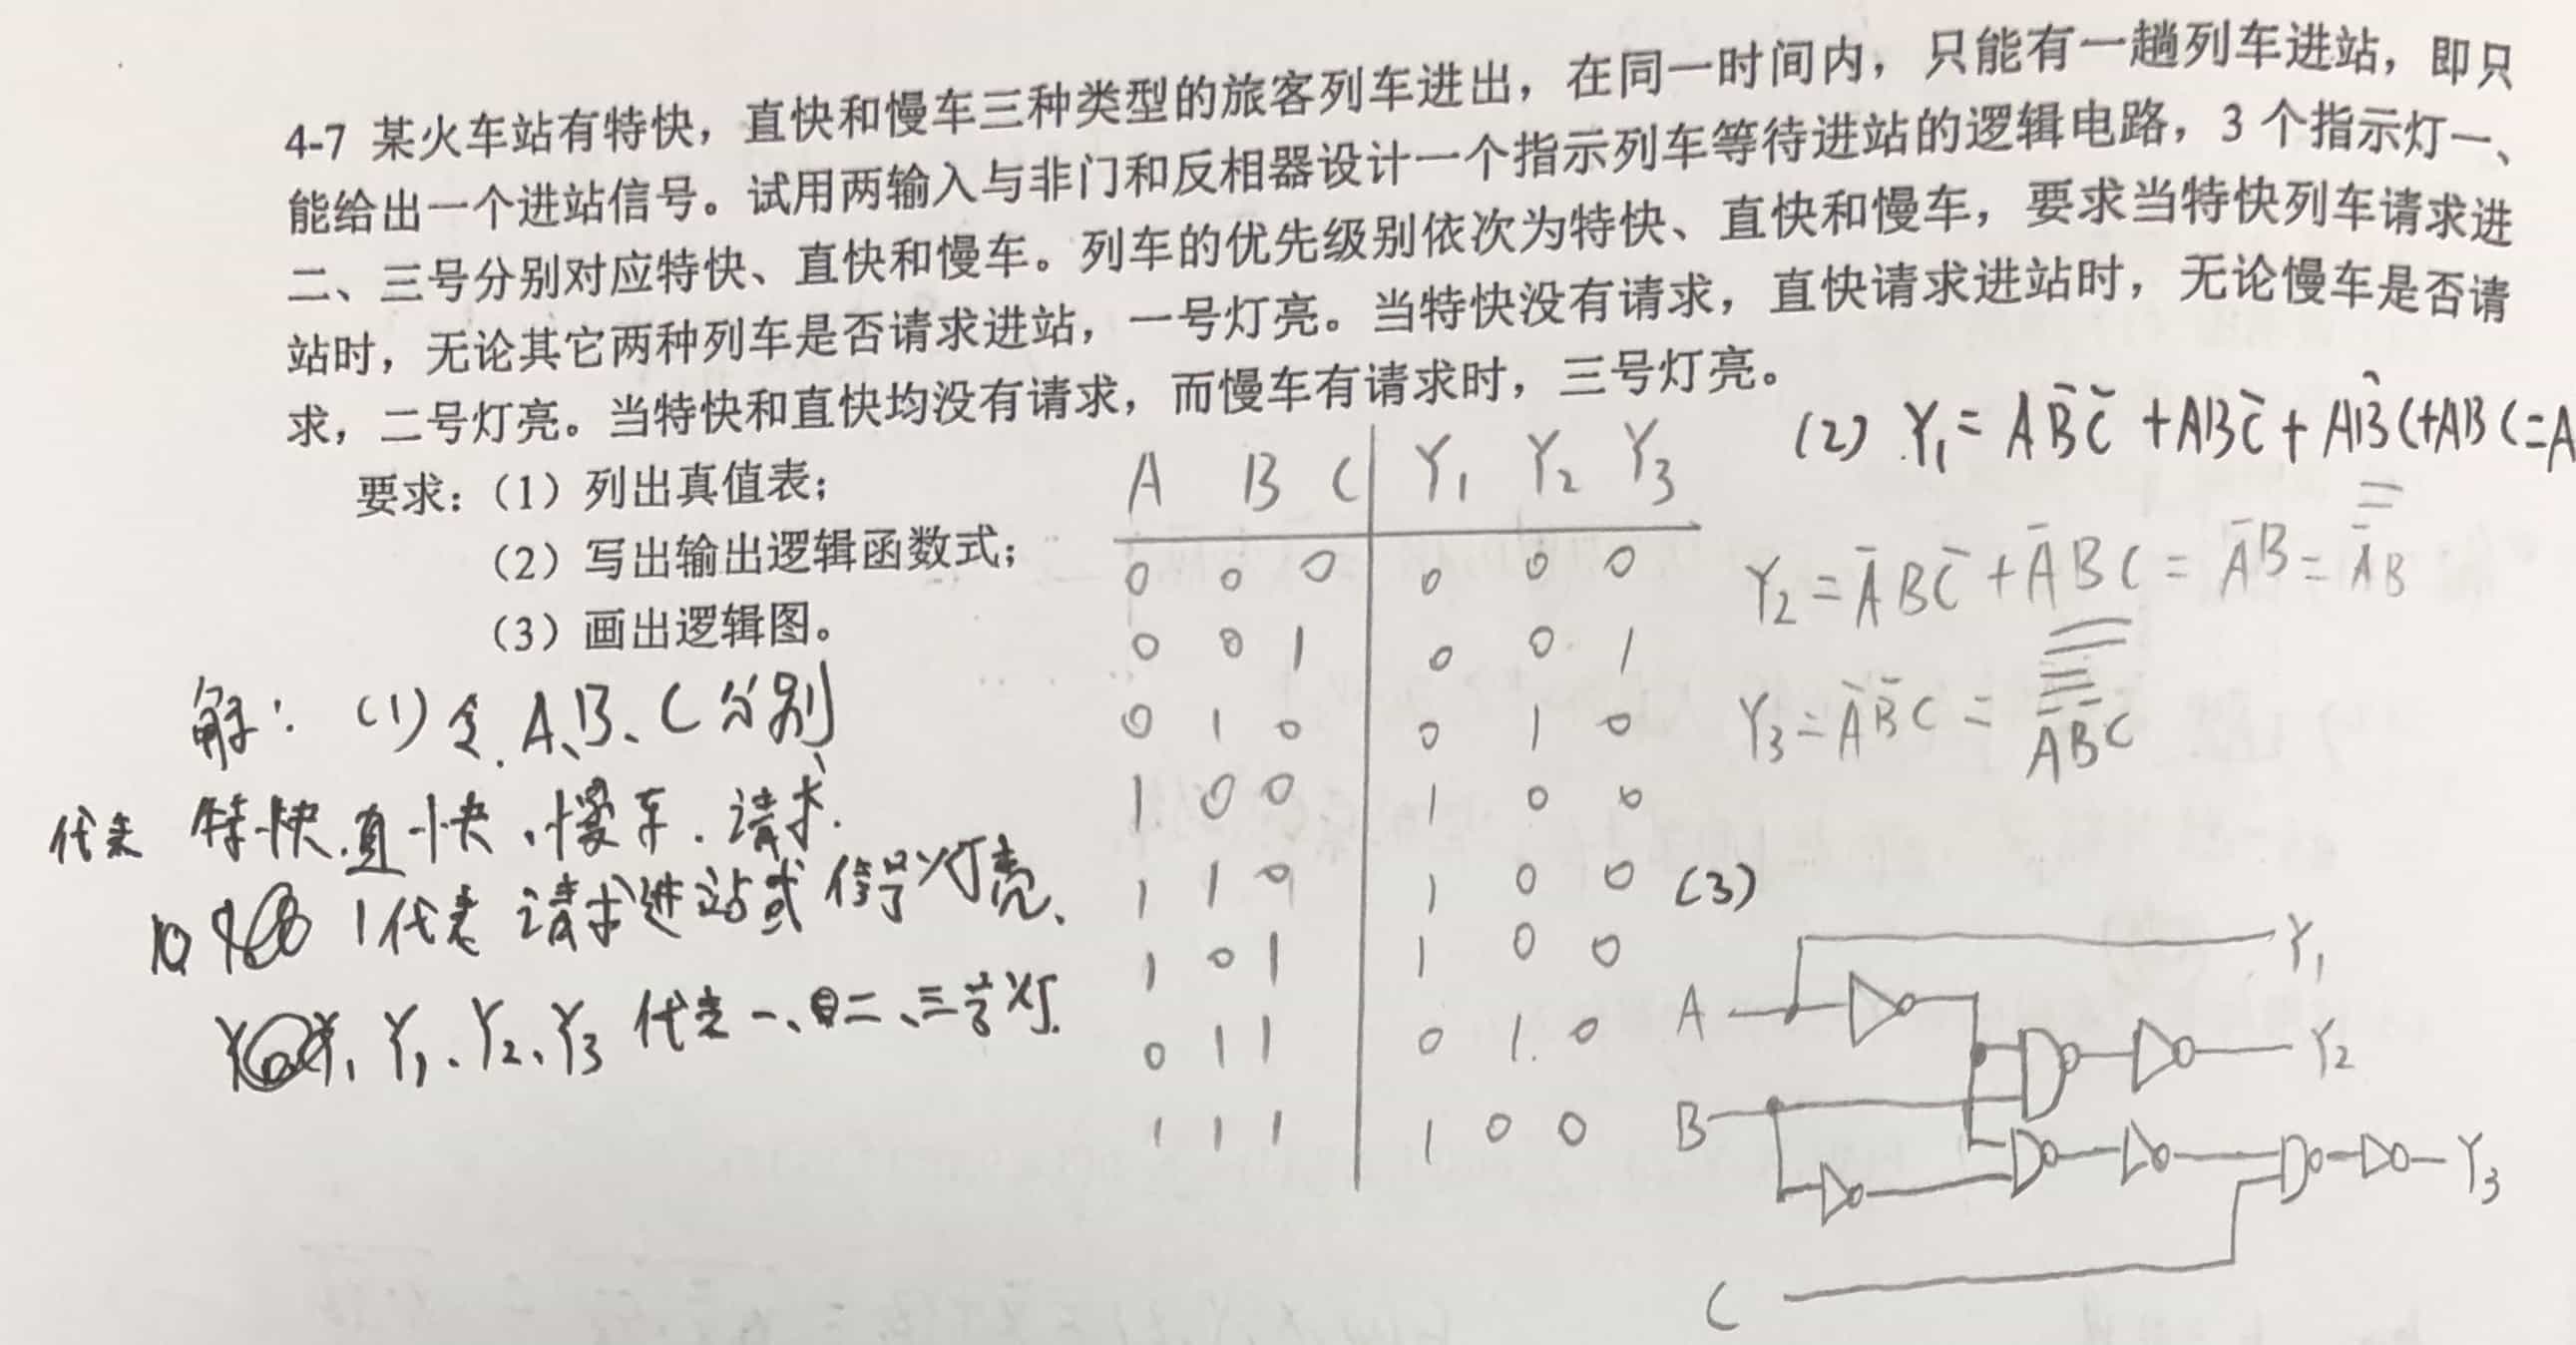 4-7 某火车站有特快，直快和慢车三种类型的旅客列车进出，在同一时间内，只能有一趟列车进站，即只
能给出一个进站信号。试用两输入与非门和反相器设计一个指示列车等待进站的逻辑电路，3 个指示灯一、
二、三号分别对应特快、直快和慢车。列车的优先级别依次为特快、直快和慢车，要求当特快列车请求进
站时，无论其它两种列车是否请求进站，一号灯亮。当特快没有请求，直快请求进站时，无论慢车是否请
求，二号灯亮。当特快和直快均没有请求，而慢车有请求时，三号灯亮。
要求：（1）列出真值表；
（2）写出输出逻辑函数式；
（3）画出逻辑图。
解：（1）令 A、B、C 分别
代表 特快、直快、慢车 请求.
1代表 请求进站或信号灯亮、
Y₁、Y₂、Y₃ 代表 一、二、三号灯.
A B C Y₁ Y₂ Y₃
0 0 0 0 0 0
0 0 1 0 0 1
0 1 0 0 1 0
1 0 0 1 0 0
1 1 0 1 0 0
1 0 1 1 0 0
0 1 1 0 1 0
1 1 1 1 0 0
(2) Y₁ = AB̄C̄ + ABC̄ + AB̄C + ABC = A
Y₂ = ĀBC̄ + ĀBC = ĀB = \overline{\overline{ĀB}}
Y₃ = ĀB̄C = \overline{\overline{\overline{\overline{ĀB̄}}C}}
(3)
A
B
C
Y₁
Y₂
Y₃